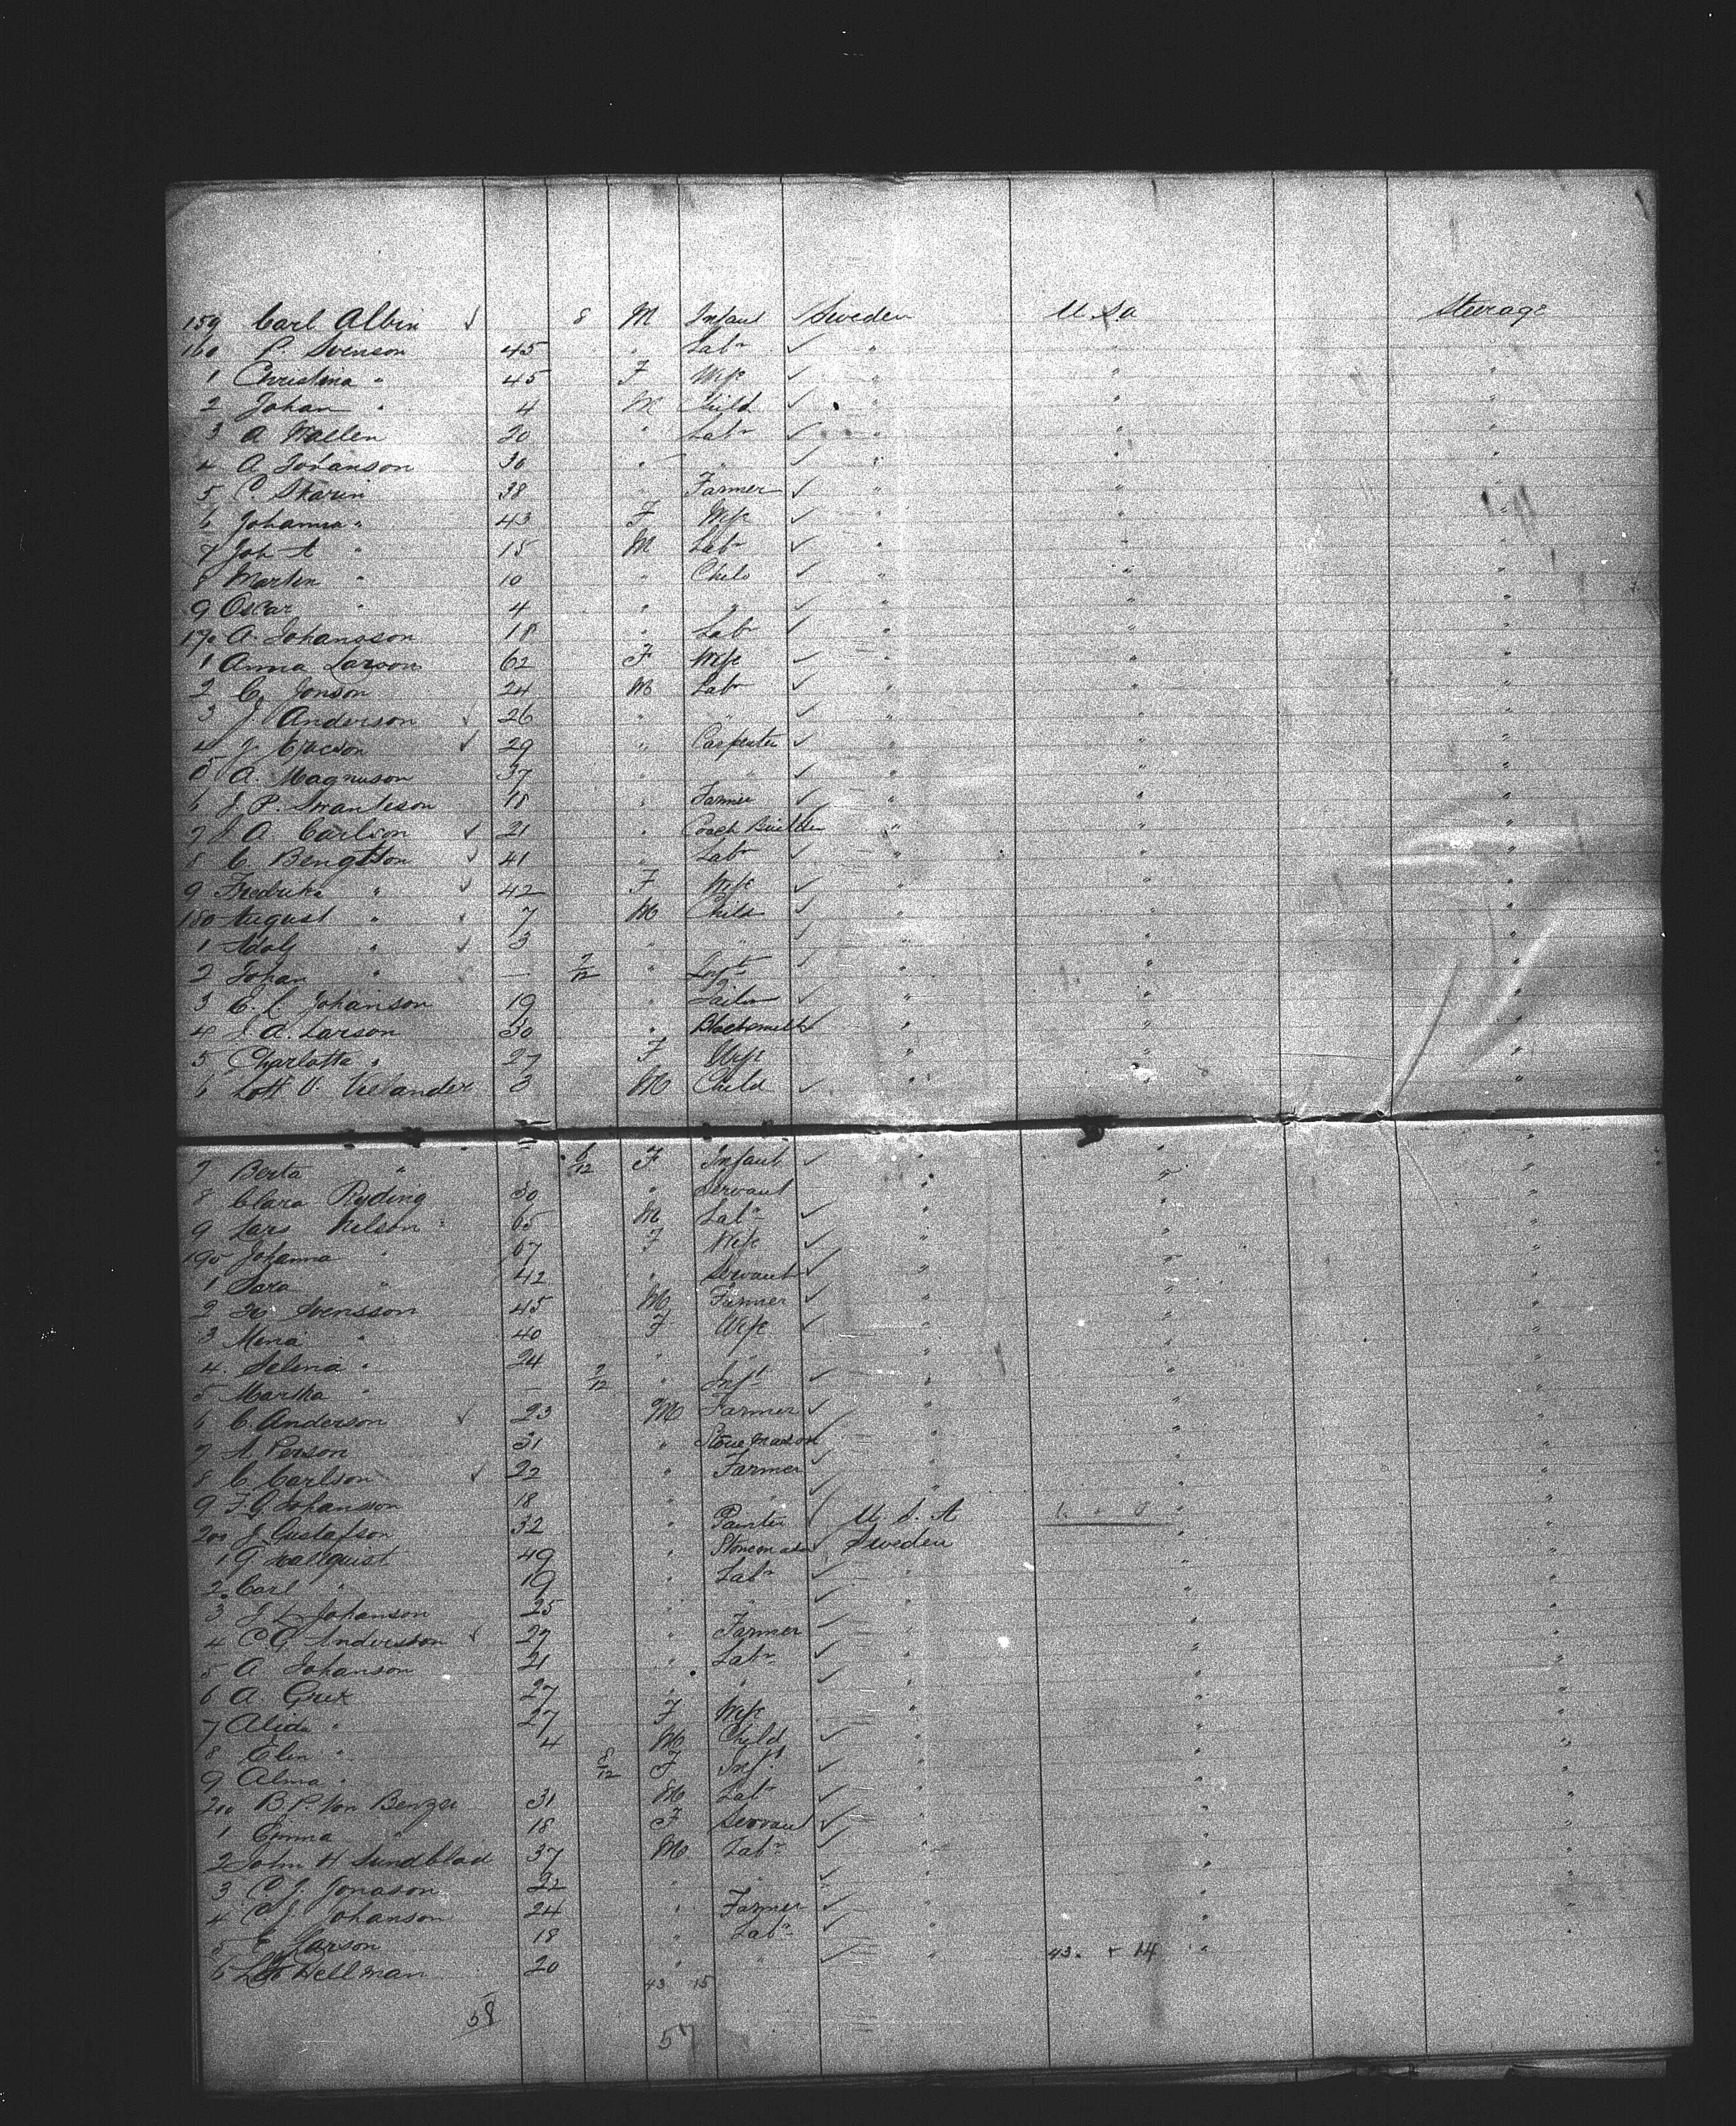 159 Carl Albin 8 M Infant Sweden U.S.a Steerage
160 P. Svenson 45 " Labr " " "
1 Christina " 45 F Wife " " "
2 Johan " 4 M Child " " "
3 A Wallen 20 " Labr " " "
4 A Johanson 30 " " " " "
5 C. Skarin 38 " Farmer " " "
6 Johanna " 43 F Wife " " "
7 Joh A " 15 M Labr " " "
8 Martin " 10 " Child " " "
9 Oscar " 4 " " " " "
170 A. Johansson 18 " Labr " " "
1 Anna Larson 62 F Wife " " "
2 C. Jonson 24 M Labr " " "
3 J. Anderson 26 " " " " "
4 J 29 " Carpenter " " "
5 A. Magnuson 37 " " " " "
6 J. P. Swanteson 18 " Farmer " " "
7 J A Carlson 21 " Coach Builder " " "
8 C. Bengtson 41 " Labr " " "
9 Fredrika " 42 F Wife " " "
180 August " 7 M Child " " "
1 Adolf " 3 " " " " "
2 Johan " — 7/12 " Inft " " "
3 C. L Johanson 19 " Tailor " " "
4 J A. Larson 30 " Blacksmith " " "
5 Charlotta " 27 F Wife " " "
6 3 M Child " " "
7 Berta " — 6/12 F Infant " " "
8 Clara Ryding 30 " Servant " " "
9 Lars Nelson 65 M Labr " " "
190 Johanna " 67 F Wife " " "
1 Sara " 42 " Servant " " "
2 Svensson 45 M Farmer " " "
3 Mina " 40 F Wife " " "
4 Selma " 24 " " " " "
5 Martha " — 2/12 " Inft " " "
6 C. Anderson 23 M Farmer " " "
7 A. Person 31 " Stone mason " " "
8 C. Carlson 22 " Farmer " " "
9 F. G Johansson 18 " " " " "
200 J. Gustafson 32 " Painter U. S. A "
1 G Hallquist 49 " Stonemason Sweden " "
2 Carl " 19 " Labr " " "
3 J L Johanson 25 " " " " "
4 C G Andersson 29 " Farmer " " "
5 A Johanson 21 " Labr " " "
6 A Grex 27 " " " " "
7 Alida " 27 F Wife " " "
8 Elin " 4 M Child " " "
9 Alma " 8/12 F Inft " " "
210 B. P. 31 M Labr " " "
1 Emma " 18 F Servant " " "
2 John H Sundblad 37 M Labr " " "
3 C J. Jonason 22 " " " " "
4 C. J Johanson 24 " Farmer " " "
5 E Larson 18 " Labr " " "
6 Hellman 20 " " " 43. + 14 "
43 15
58
57